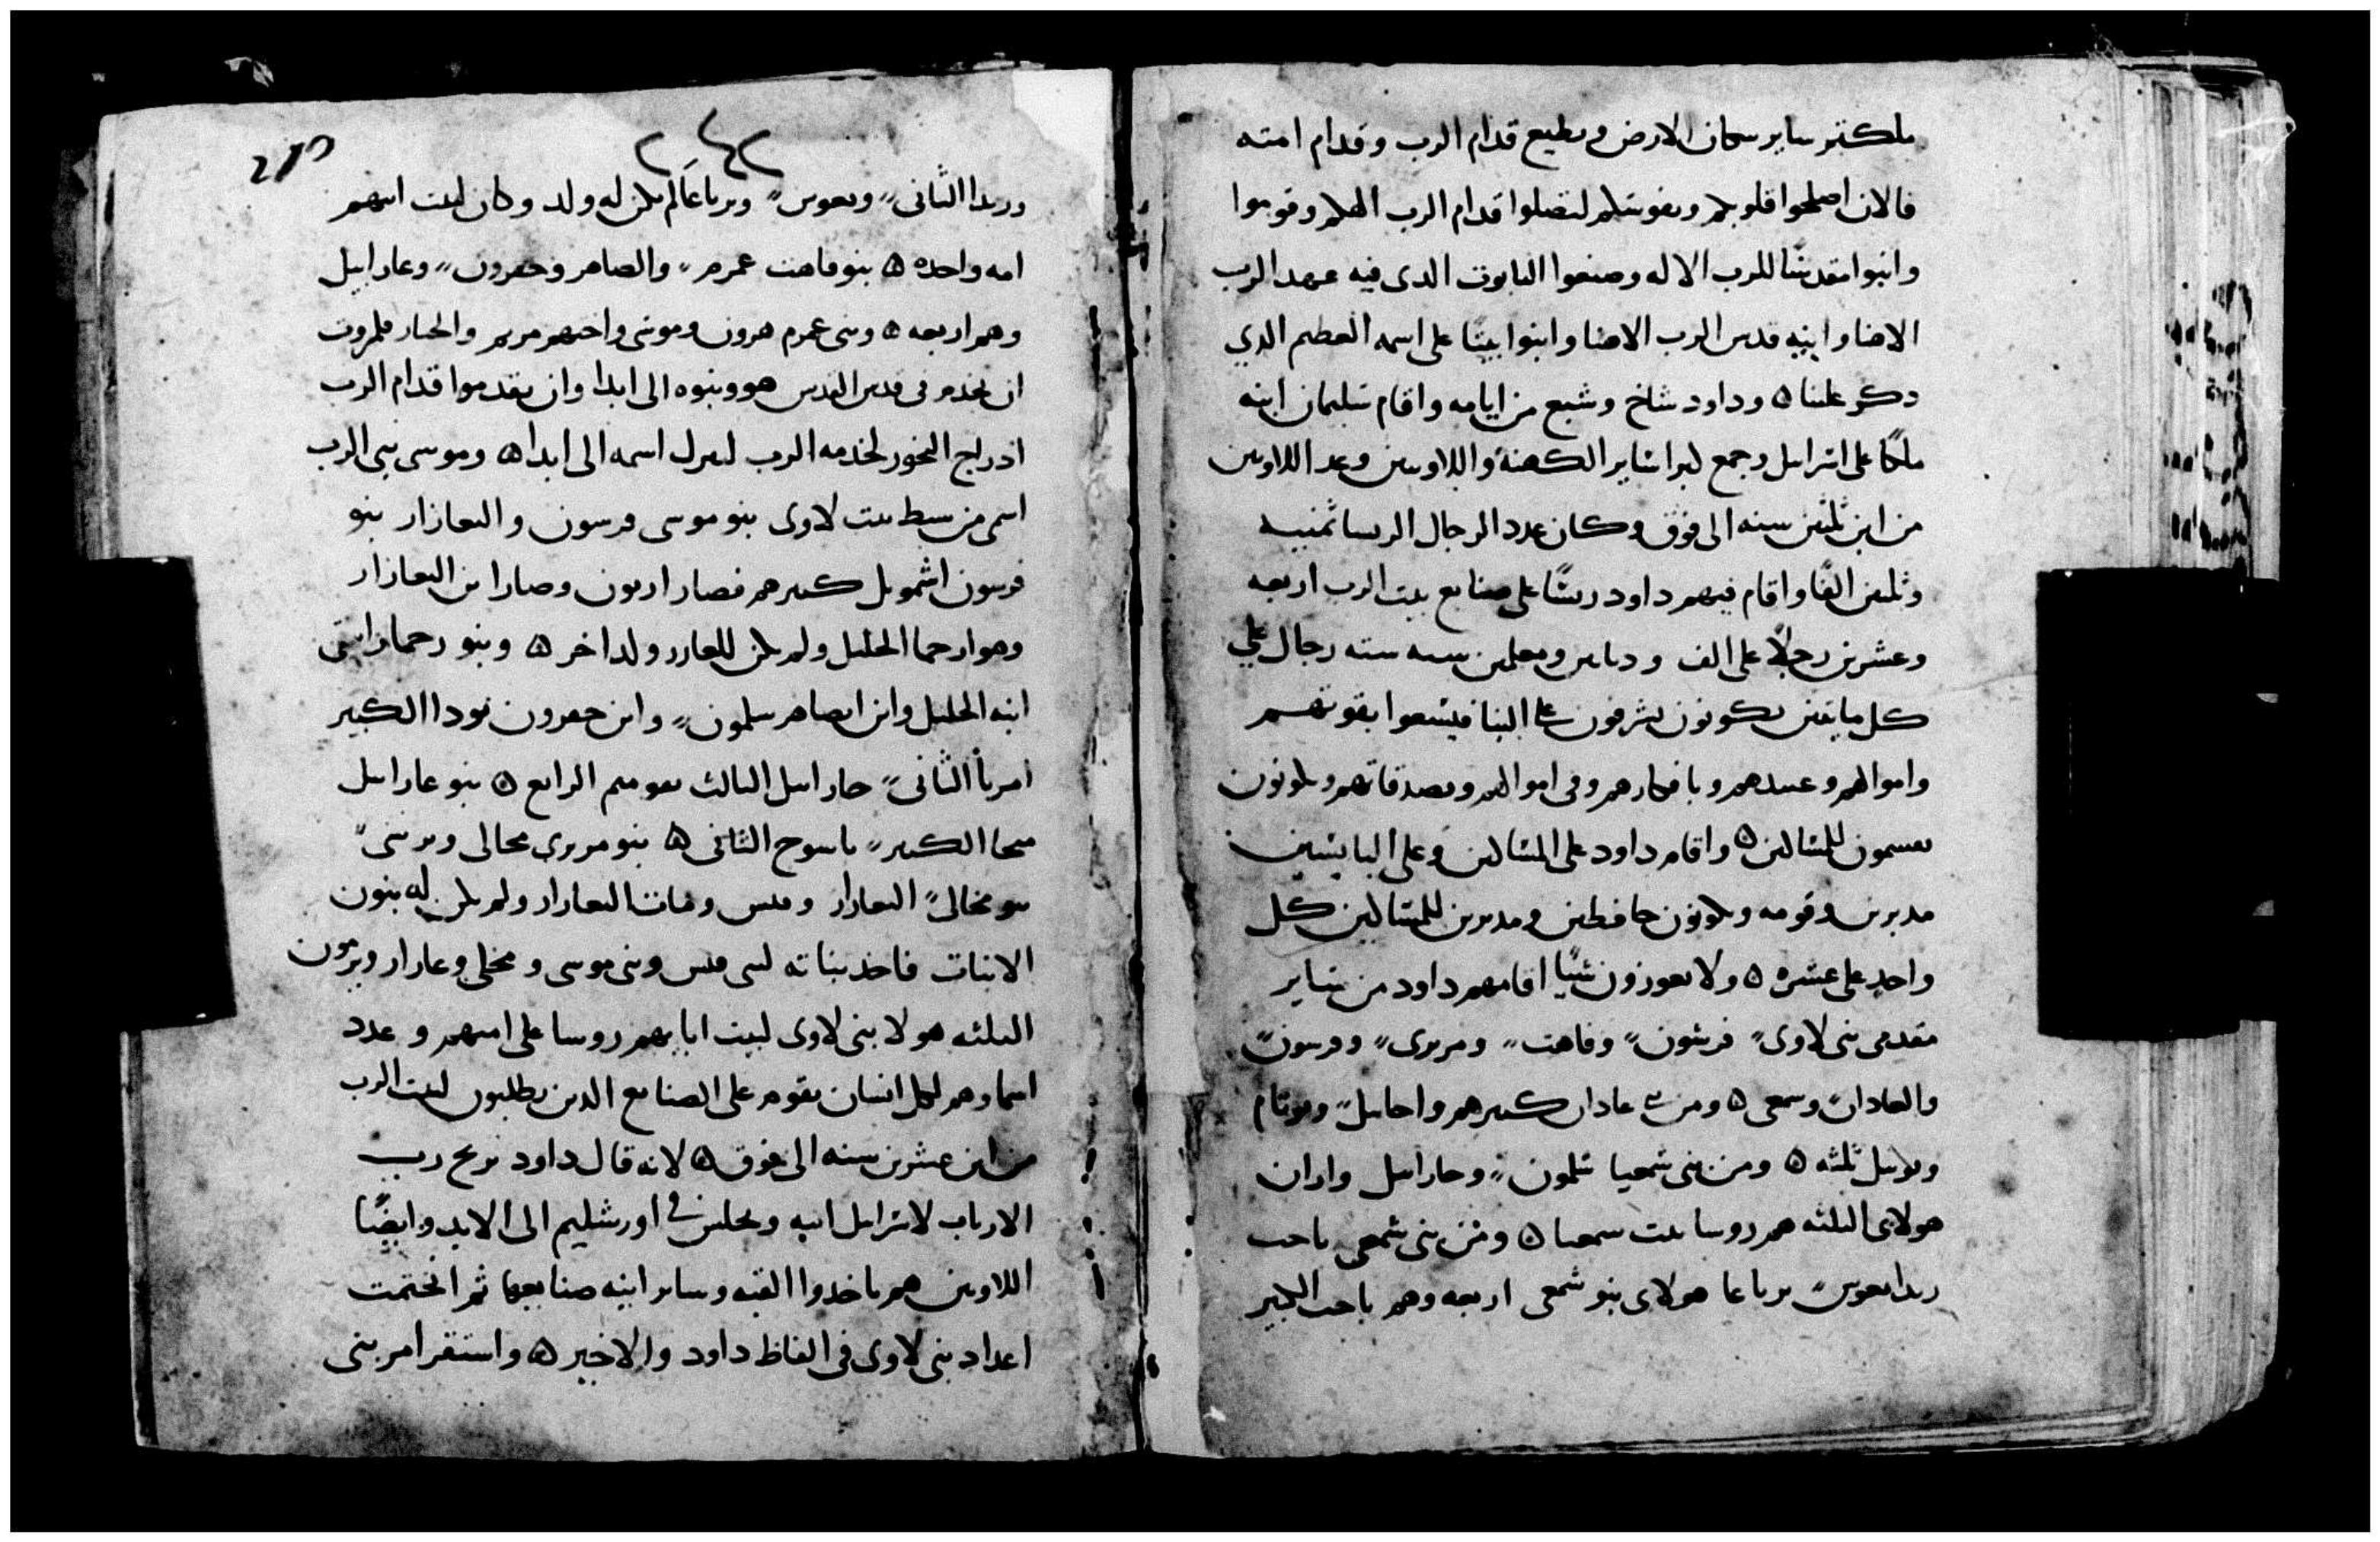 سكان الارض ويطيع قدام الرب وقدام امته
فالان اصلحوا قلوبكم ونفوسكم لتصلوا قدام الرب الهكم وقوموا
وابنوا مقدسًا للرب الاله وصنعوا التابوت الدى فيه عهد الرب
الاهنا وانيه قدس الرب الاهنا وابنوا بيتًا على اسمه العظيم الدي
دكر علينا ۞ وداود شاخ وشبع من ايامه واقام سليمان ابنه
ملكًا على اسرايل وجمع كبرا ساير الكهنة واللاويين وعد اللاويين
من ابن ثلثين سنه الى فوق وكان عدد الرجال الريسا ثمنيه
وثلثين الفًا واقام فيهم داود ريسًا على صنايع بيت الرب اربعه
وعشرين رجلًا على الف ومعلمين سته رجال على
كل مايتين يكونون يشرفون على البنا فيسعوا بقوتهم
واموالهم وعبيدهم وبافكارهم وفى اموالهم وبصدقاتهم ويكونون
يقسمون للمساكين ۞ واقام داود على المساكين وعلى البايسين
مدبرين وقومه ويكونون حافظين ومدبرين للمساكين كل
واحد على عشره ۞ ولا يعوزون شيًا اقامهم داود من ساير
مقدمى بنى لاوى فرسون وقاهت ومررى وفرسون
والعادان وسمعى ۞ ومن بنى عادان كبيرهم واحايل ويوثام
ويوييل ثلثه ۞ ومن بنى شمعيا شلمون وحارايل واران
هولاى الثلثه هم روسا بيت سمعيا ۞ ومن بنى شمعى ياحت
ريدا يعوس برياعا هولاى بنو شمعى اربعه وهم ياحت الكبير
وريدا الثانى ويعوس وبرياعا لم يكن له ولد وكان لبيت ابيهم
امه واحده ۞ بنو قاهت عمرم والصاهر وحفرون وعارابيل
وهم اربعه ۞ وبنى عمرم هرون وموسى واختهم مريم واختار هرون
ان يخدم فى قدس القدس هو وبنوه الى ابدا وان يقدموا قدام الرب
ادراج البخور لخدمه الرب اسمه الى ابدا ۞ وموسى نبى الرب
اسمى من سبط بيت لاوى بنو موسى فرسون واليعازار بنو
فرسون اشمويل كبيرهم فصار اربون وصار ابن اليعازار
وهو ارحما الجليل ولم يكن للعازر ولد اخر ۞ وبنو رحما
ابنه الجليل وابن ايصاهر سلمون وابن حفرون نودا الكبير
امريا الثانى حارايل الثالث يعوميم الرابع ۞ بنو عارايل
ميخا الكبير ياسوح الثانى ۞ بنو مررى محالى
بنو محالى اليعازار وقيس ومات اليعازار ولم يكن له بنون
الا بنات فاخد بناته بنى قيس وبنى موسى ومحلى وعادار ويرمون
الثلثه هولا بنى لاوى لبيت ابايهم روسا على امتهم وعدد
اسماوهم لكل انسان يقوم على الصنايع الدين يطلبون لبيت الرب
من ابن عشرين سنه الى فوق ۞ لانه قال داود يريح رب
الارباب لاسرايل ويجلس فى اورشليم الى الابد وايضًا
اللاويين هم ياخدوا القبه وساير انيه صنايعها ثم انختمت
اعداد بنى لاوى فى الفاظ داود والاخير ۞ واستقر امر بنى